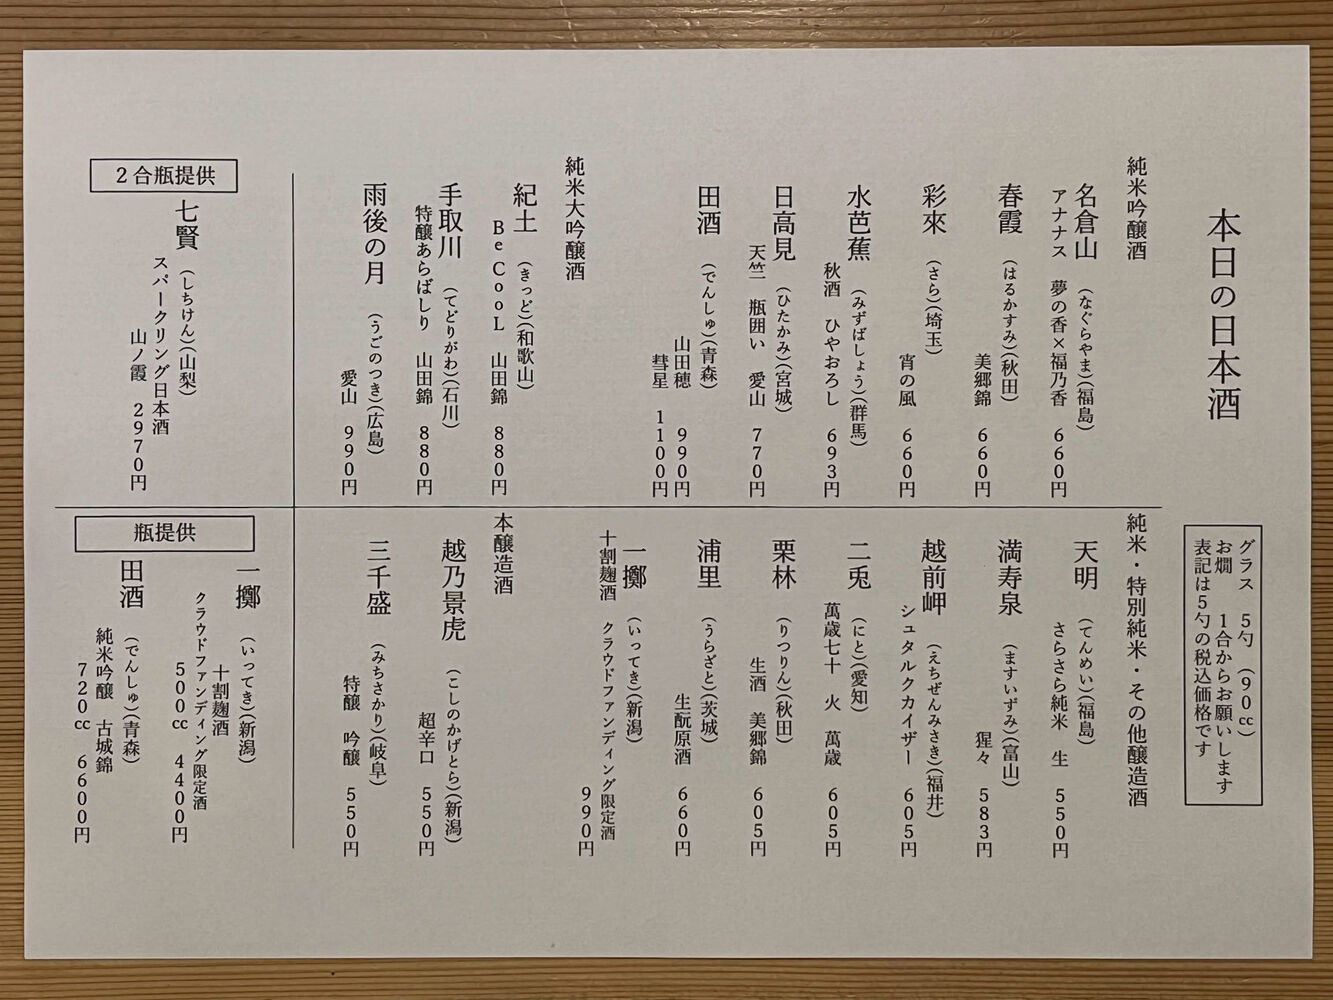 本日の日本酒
グラス　5勺　(90cc)
お燗　1合からお願いします
表記は5勺の税込価格です
純米吟醸酒
名倉山　(なぐらやま)(福島)
アナナス　夢の香×福乃香　660円
春霞　(はるかすみ)(秋田)
美郷錦　660円
彩來　(さら)(埼玉)
宵の風　660円
水芭蕉　(みずばしょう)(群馬)
秋酒　ひやおろし　693円
日高見　(ひたかみ)(宮城)
天竺　瓶囲い　愛山　770円
田酒　(でんしゅ)(青森)
山田穂　990円
彗星　1100円
純米大吟醸酒
紀土　(きっど)(和歌山)
BeCooL　山田錦　880円
手取川　(てどりがわ)(石川)
特醸あらばしり　山田錦　880円
雨後の月　(うごのつき)(広島)
愛山　990円
純米・特別純米・その他醸造酒
天明　(てんめい)(福島)
さらさら純米　生　550円
満寿泉　(ますいずみ)(富山)
猩々　583円
越前岬　(えちぜんみさき)(福井)
シュタルクカイザー　605円
二兎　(にと)(愛知)
萬歳七十　火　萬歳　605円
栗林　(りつりん)(秋田)
生酒　美郷錦　605円
浦里　(うらざと)(茨城)
生酛原酒　660円
一擲　(いってき)(新潟)
十割麹酒　クラウドファンディング限定酒
990円
本醸造酒
越乃景虎　(こしのかげとら)(新潟)
超辛口　550円
三千盛　(みちさかり)(岐阜)
特醸　吟醸　550円
2合瓶提供
七賢　(しちけん)(山梨)
スパークリング日本酒
山ノ霞　2970円
瓶提供
一擲　(いってき)(新潟)
十割麹酒
クラウドファンディング限定酒
500cc　4400円
田酒　(でんしゅ)(青森)
純米吟醸　古城錦
720cc　6600円